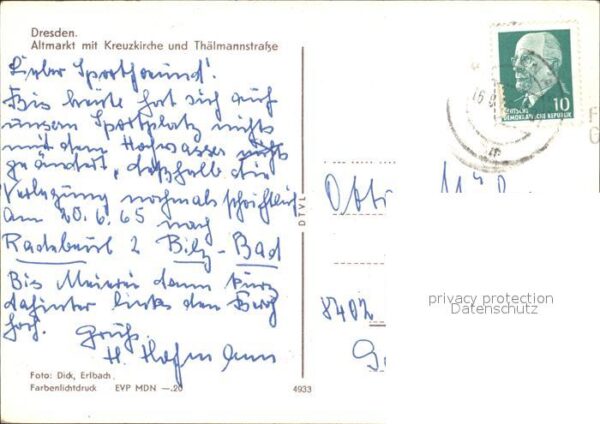 Dresden.
Altmarkt mit Kreuzkirche und Thälmannstraße
Lieber Sportfreund!
Bis heute hat sich auf
unserem Sportplatz nichts
mit dem Hochwasser
geändert, deßhalb die
Verlegung nochmals schriftlich
am 20.6.65 nach
Radebeul 2 Bilz-Bad
Bis Meierei dann kurz
dahinter links den Berg
hoch.
Gruß
H. Hofmann
Foto: Dick, Erlbach
Farbenlichtdruck EVP MDN —.20
4933
DTVL
10
DEUTSCHE
DEMOKRATISCHE REPUBLIK
8402
privacy protection
Datenschutz